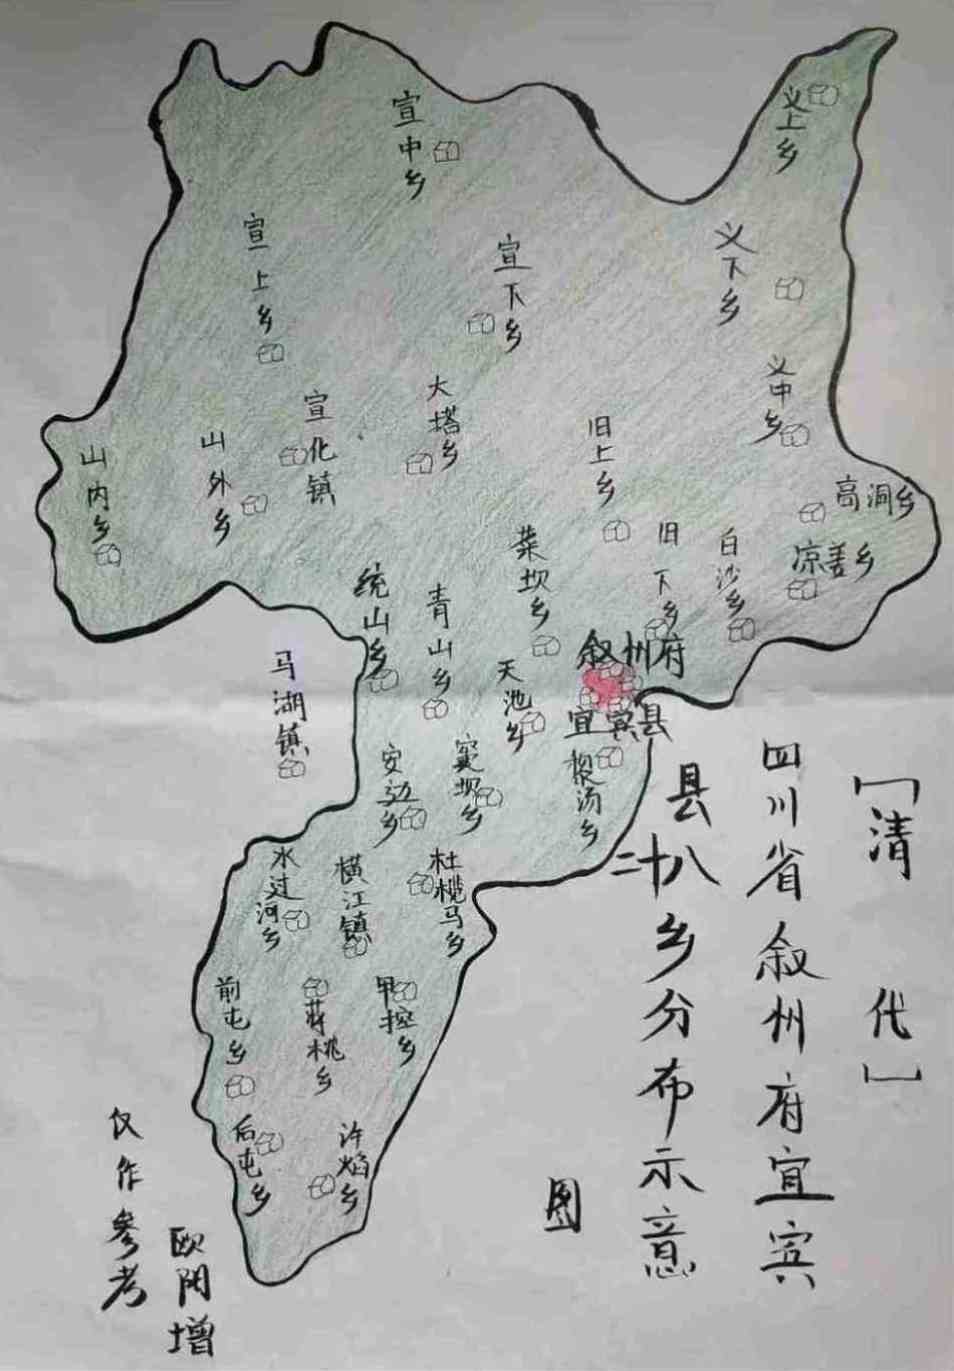 [清代]
四川省叙州府宜宾
县二十八乡分布示意
图
义上乡
宣中乡
宣上乡
宣下乡
义下乡
义中乡
大塔乡
宣化镇
旧上乡
山外乡
山内乡
高洞乡
凉姜乡
白沙乡
旧下乡
菜坝乡
统山乡
青山乡
叙州府
宜宾县
天池乡
马湖镇
安边乡
窦坝乡
楼汤乡
水过河乡
横江镇
杜榄马乡
前屯乡
蒋桃乡
甲控乡
后屯乡
许焰乡
仅作参考
欧阳增